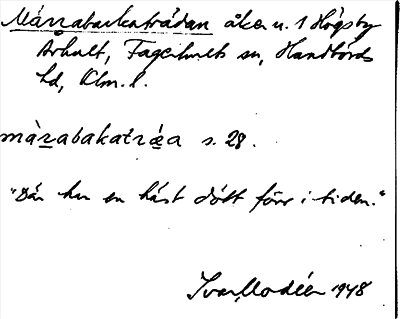 Márrabackatrádan åker u. 1 Högsby
Århult, Fagerhults sn, Handbörds
hd, Klm. l.
màrabakatræa s. 28.
"Där har en häst dött förr i tiden."
Ivar Modéer 1948